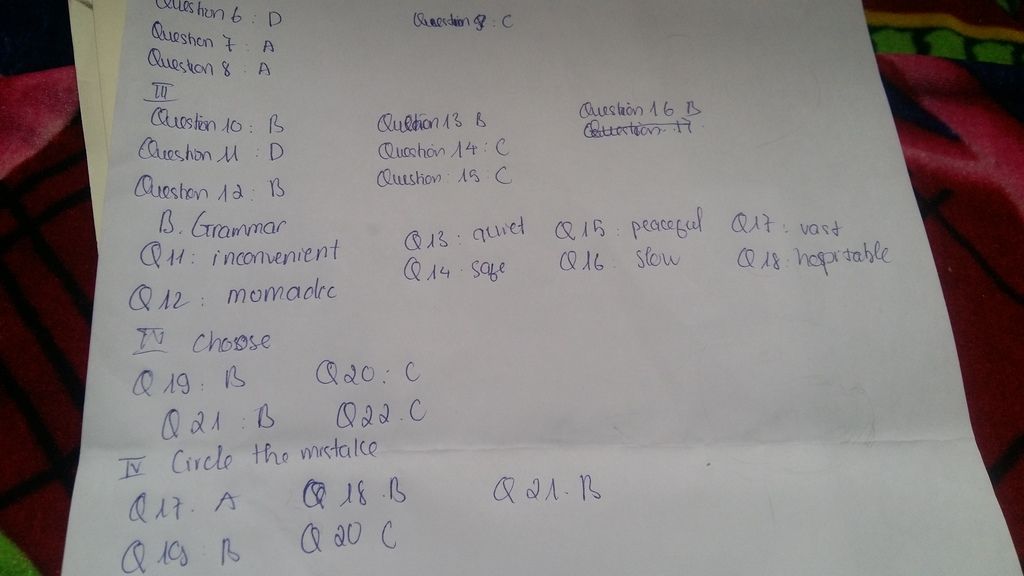 Question 6 : D
Question 9 : C
Question 7 : A
Question 8 . A
III
Question 10 : B
Question 13 B
Question 16 B
Question 11 : D
Question 14 : C
Question 17
Question 12 : B
Question 15 C
B. Grammar
Q 11 : inconvenient
Q 13 : quiet
Q 15 : peaceful
Q 17 : vast
Q 12 : momadic
Q 14 . safe
Q 16 . slow
Q 18 : hospitable
IV choose
Q 19 : B
Q 20 : C
Q 21 : B
Q 22 . C
IV Circle the mistake
Q 17 . A
Q 18 . B
Q 21 . B
Q 19 : B
Q 20 C